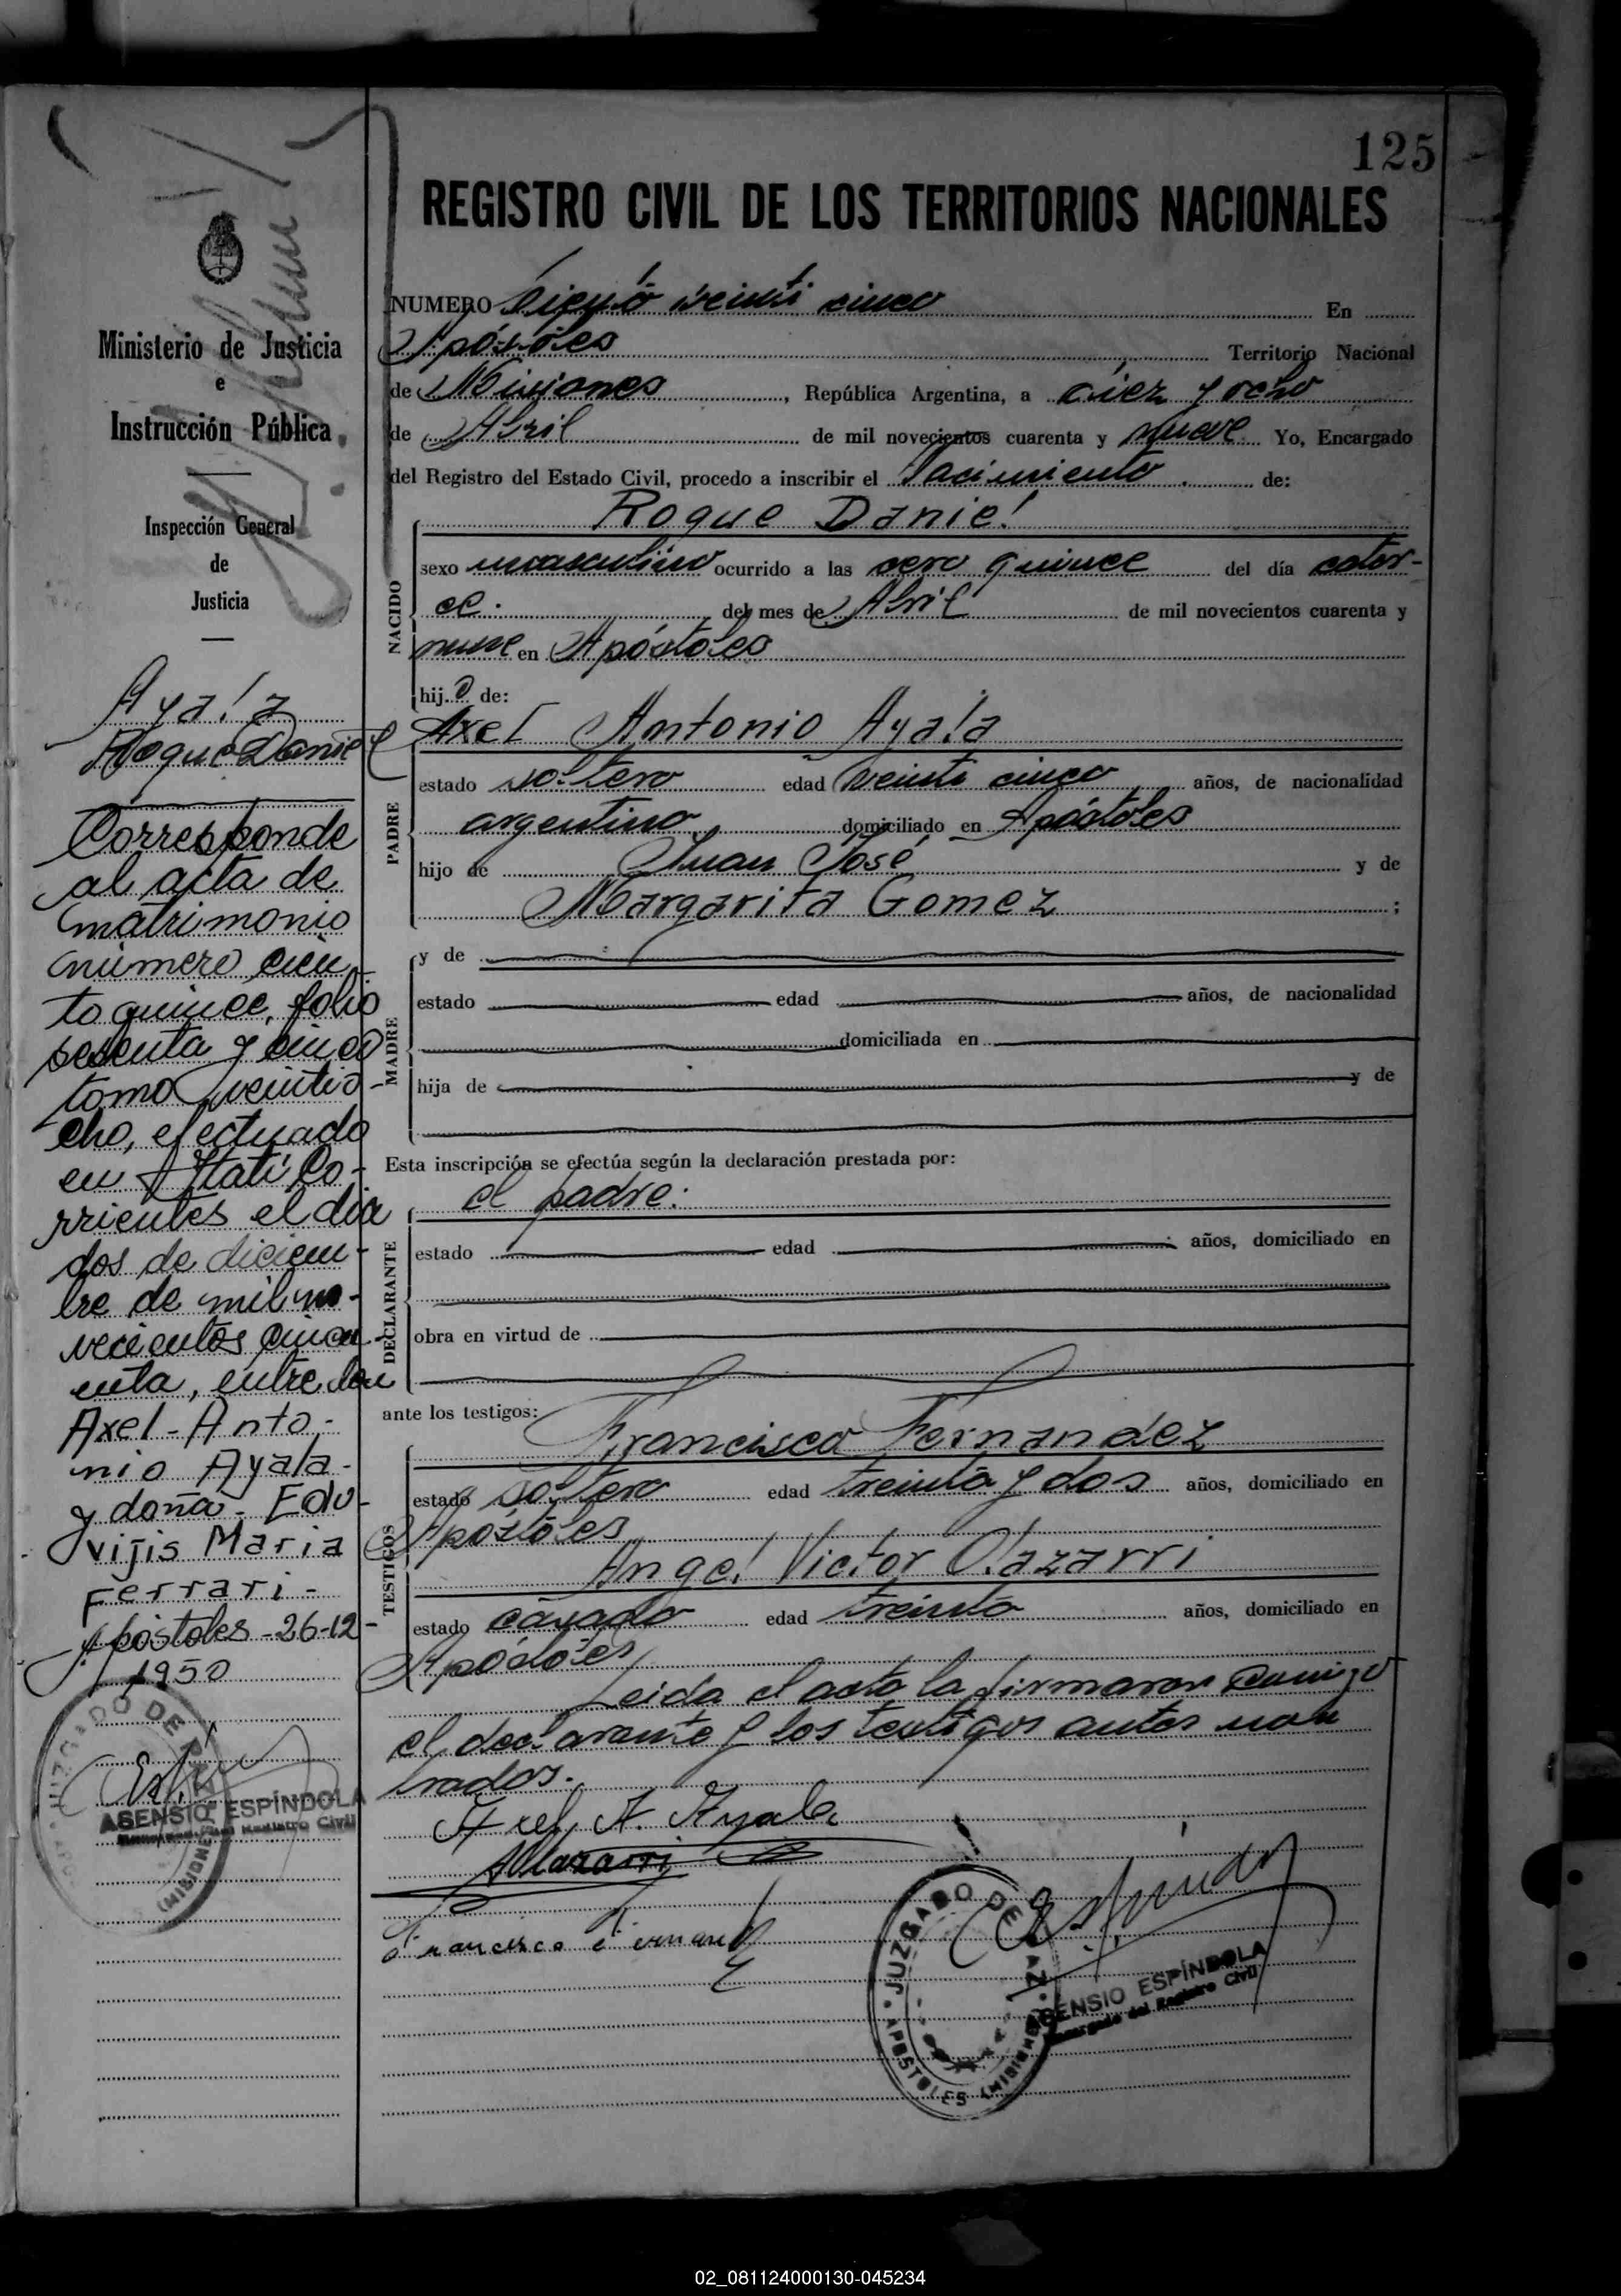 125
REGISTRO CIVIL DE LOS TERRITORIOS NACIONALES
Ministerio de Justicia
e
Instrucción Pública
Inspección General
de
Justicia
Ayala
Roque Daniel
Corresponde
al acta de
matrimonio
número cien
to quince, folio
sesenta y cinco
tomo veintio-
cho, efectuado
en Itatí Co-
rrientes el día
dos de diciem-
bre de mil no-
vecientos cincu-
enta, entre don
Axel-Anto-
nio Ayala-
y doña-Edu-
vijis Maria
Ferrari-
Apóstoles-26-12-
1950
JUZGADO DE PAZ
(MISIONES)
ASENSIO ESPÍNDOLA
Encargado del Registro Civil
NUMERO Ciento veinti cinco En
Apóstoles Territorio Nacional
de Misiones, República Argentina, a diez y ocho
de Abril de mil novecientos cuarenta y nueve Yo, Encargado
del Registro del Estado Civil, procedo a inscribir el Nacimiento de:
NACIDO
Roque Daniel
sexo masculino ocurrido a las cero quince del día cator-
ce. del mes de Abril de mil novecientos cuarenta y
nueve en Apóstoles
hijo de:
PADRE
Axel Antonio Ayala
estado soltero edad veinti cinco años, de nacionalidad
argentino domiciliado en Apóstoles
hijo de Juan José y de
Margarita Gomez ;
MADRE
y de
estado edad años, de nacionalidad
domiciliada en
hija de y de
Esta inscripción se efectúa según la declaración prestada por:
DECLARANTE
el padre:
estado edad años, domiciliado en
obra en virtud de
ante los testigos:
TESTIGOS
Francisco Fernandez
estado soltero edad treinta y dos años, domiciliado en
Apóstoles
Angel Victor Olazarri
estado casado edad treinta años, domiciliado en
Apóstoles
Leida el acta la firmaron conmigo
el declarante y los testigos antes nom
brados.
Axel A. Ayala
AOlazarri
Francisco Fernandez
JUZGADO DE PAZ
APOSTOLES (MISIONES)
ASENSIO ESPÍNDOLA
Encargado del Registro Civil
02_081124000130-045234